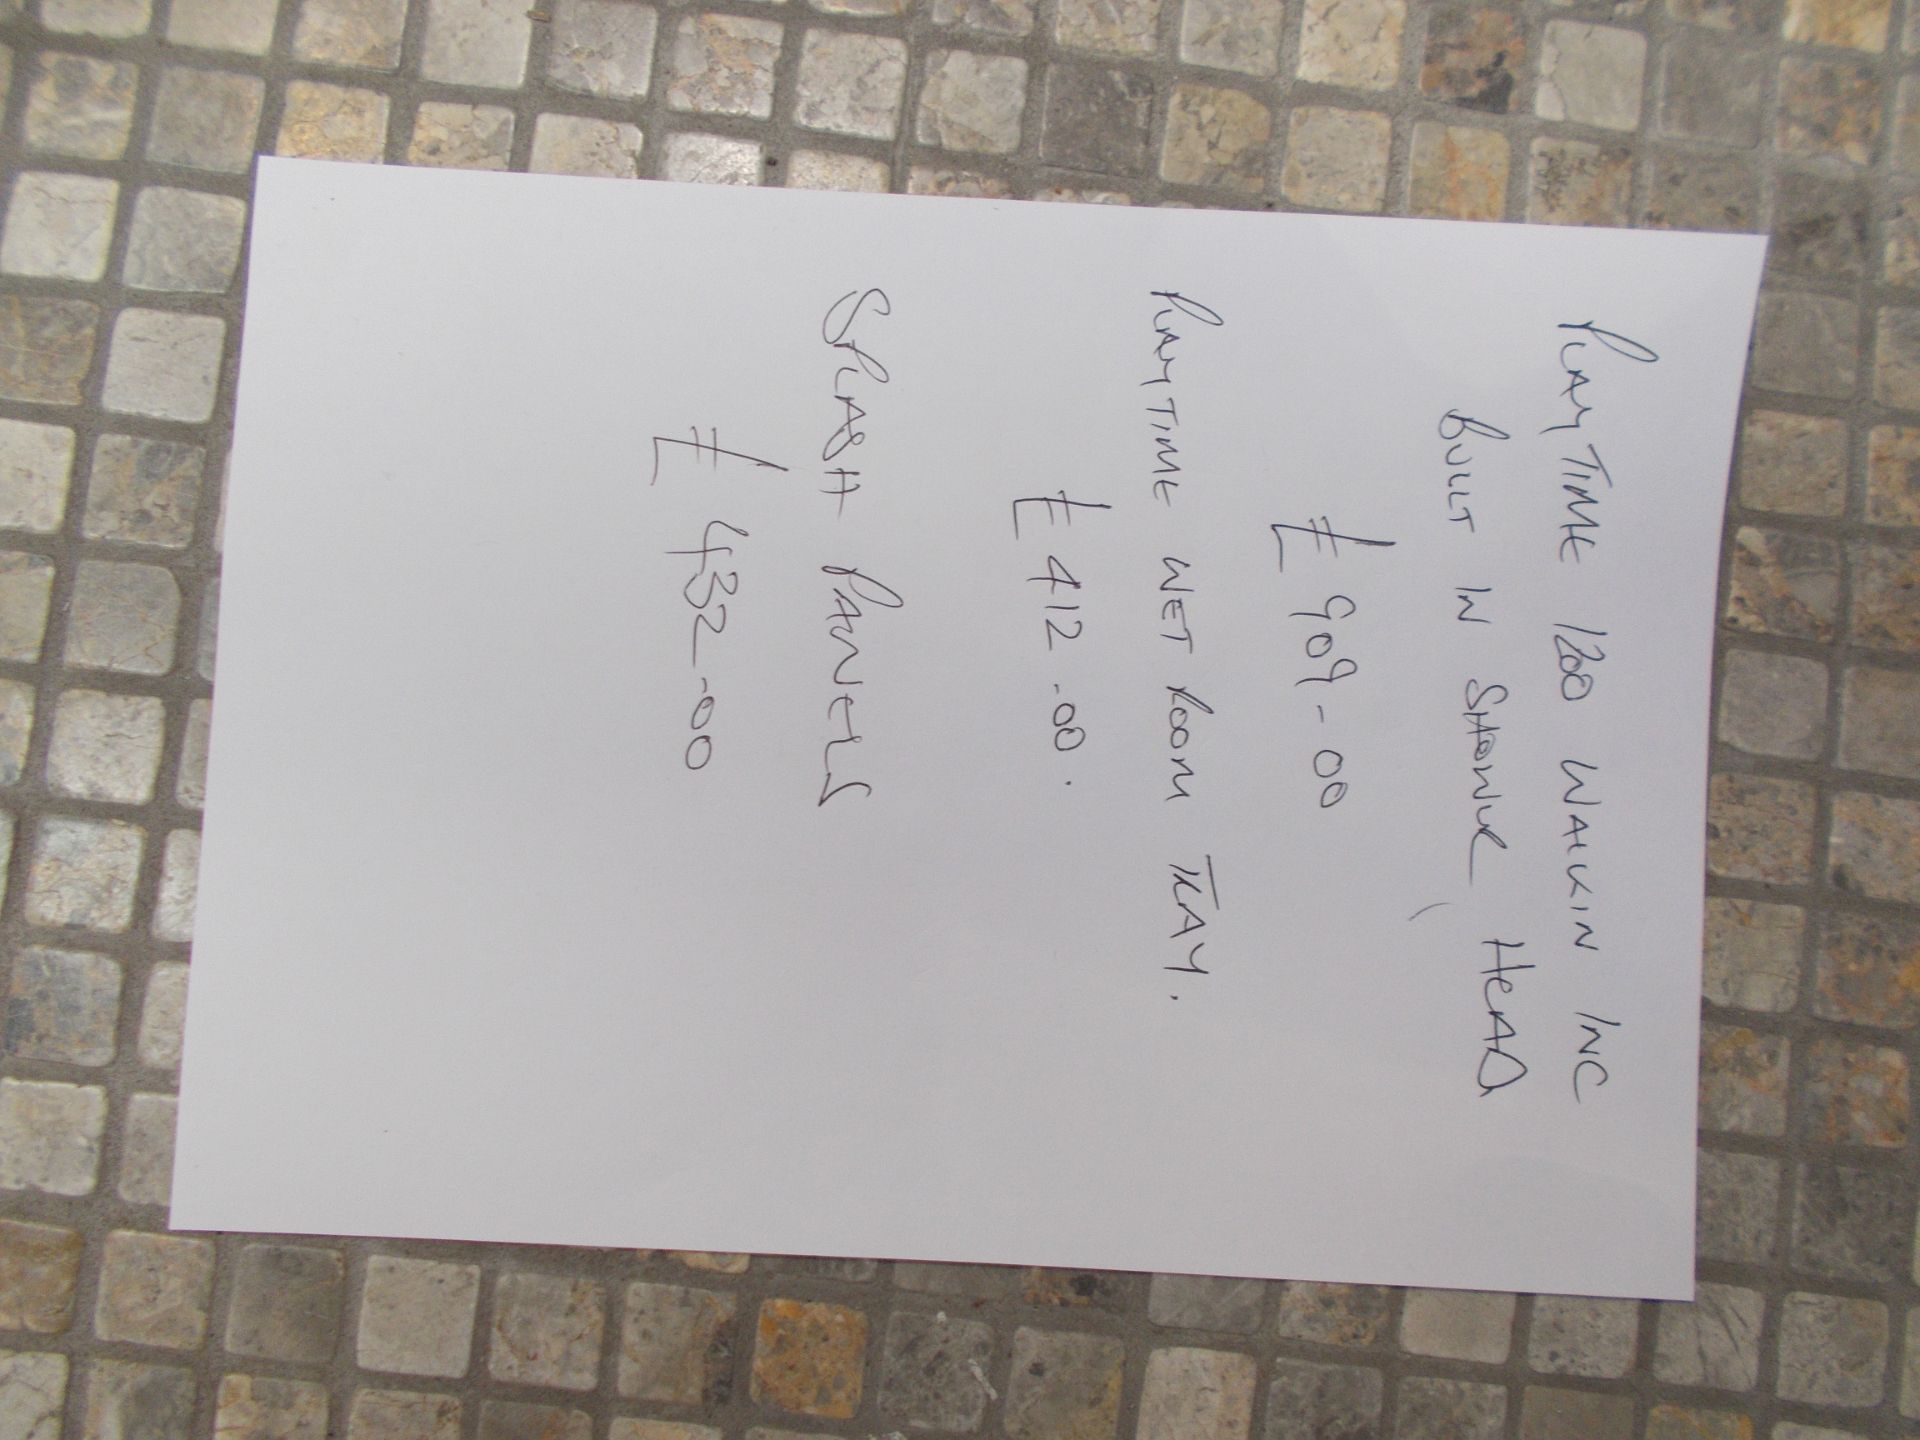 PLAYTIME 1200 WALKIN INC
BUILT IN SHOWER HEAD
£ 909-00
PLAYTIME WET ROOM TRAY.
£ 412.00.
SPLASH PANELS
£ 432-00